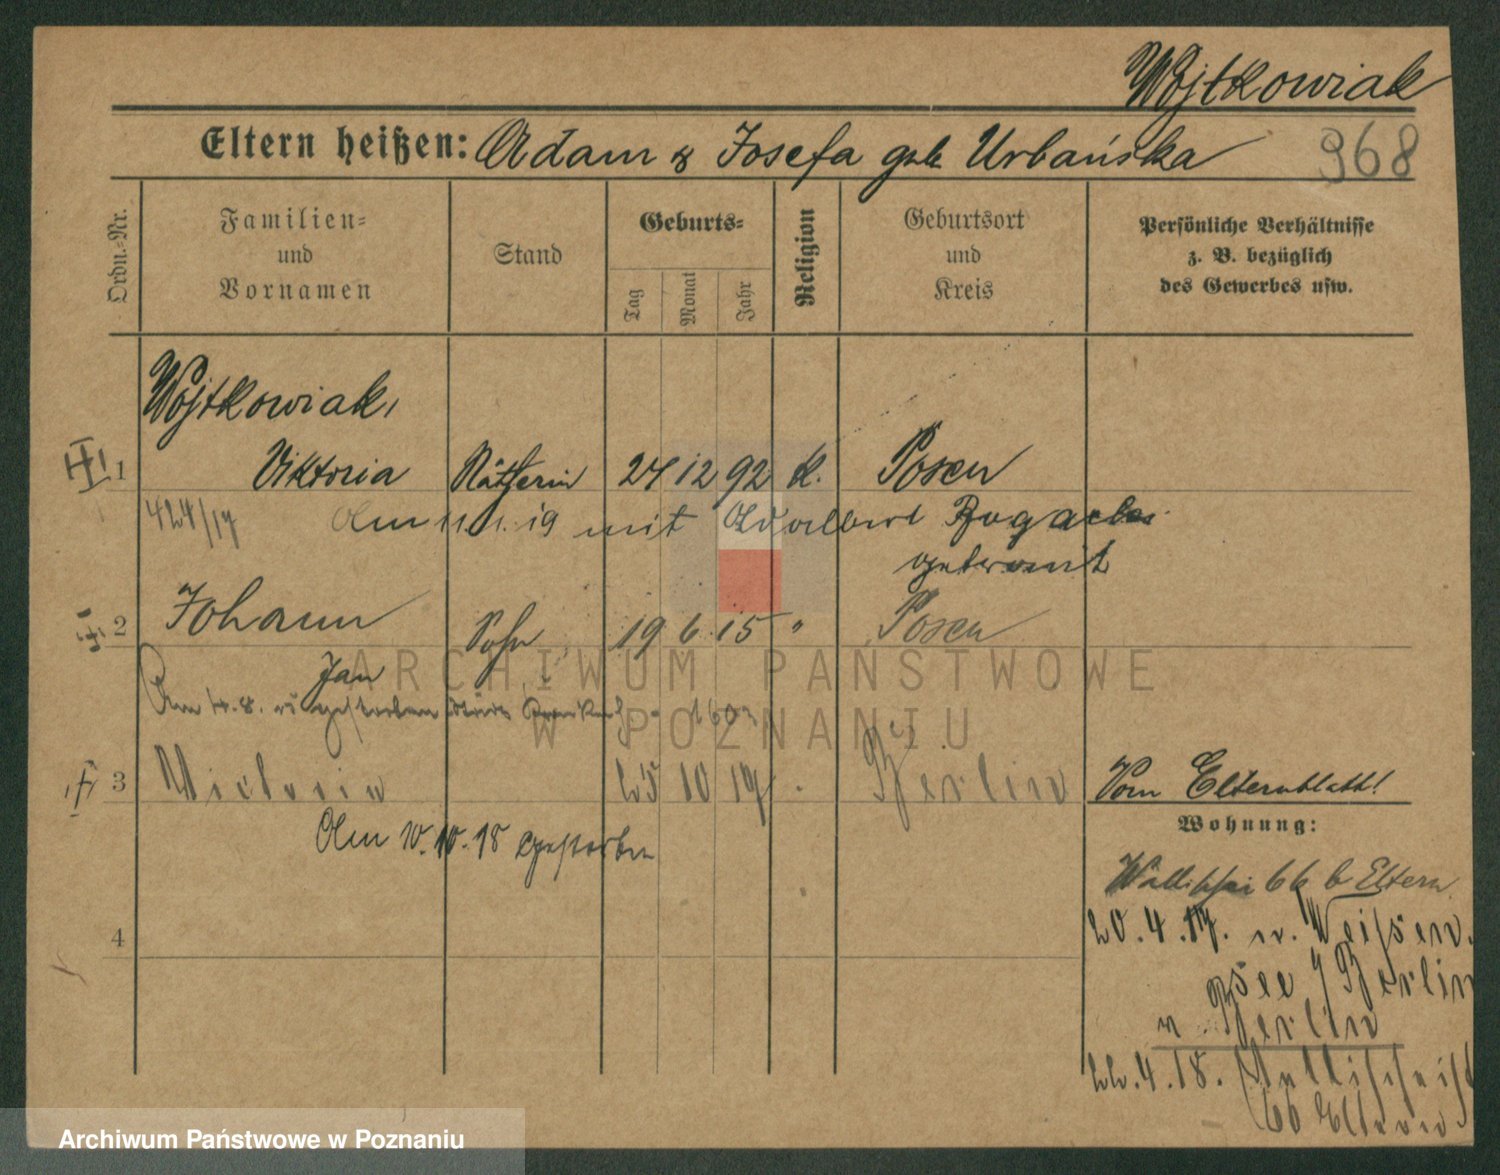 Wojtkowiak
Eltern heißen: Adam & Josefa geb Urbańska 968
Ordn.-Nr.
Familien- und Vornamen
Stand
Geburts-
Tag
Monat
Jahr
Religion
Geburtsort und Kreis
Persönliche Verhältnisse z. B. bezüglich des Gewerbes usw.
Wojtkowiak,
1 Viktoria Nätherin 24 12 92 k. Posen
424/19 Am 11.1.19 mit Adalbert
getraut
2 Johann Sohn 19 6 15 " Posen
Jan
Am 14.8. gestorben
3 Victoria 25 10 17 Berlin Vom Elternblatt!
Wohnung:
Am 10.10.18 gestorben
Wallischei 66 b Eltern
4
20.4.17. n. Weißen
see / Berlin
n Berlin
22.4.18. Wallischei
66 Eltern
ARCHIWUM PAŃSTWOWE
W POZNANIU
Archiwum Państwowe w Poznaniu